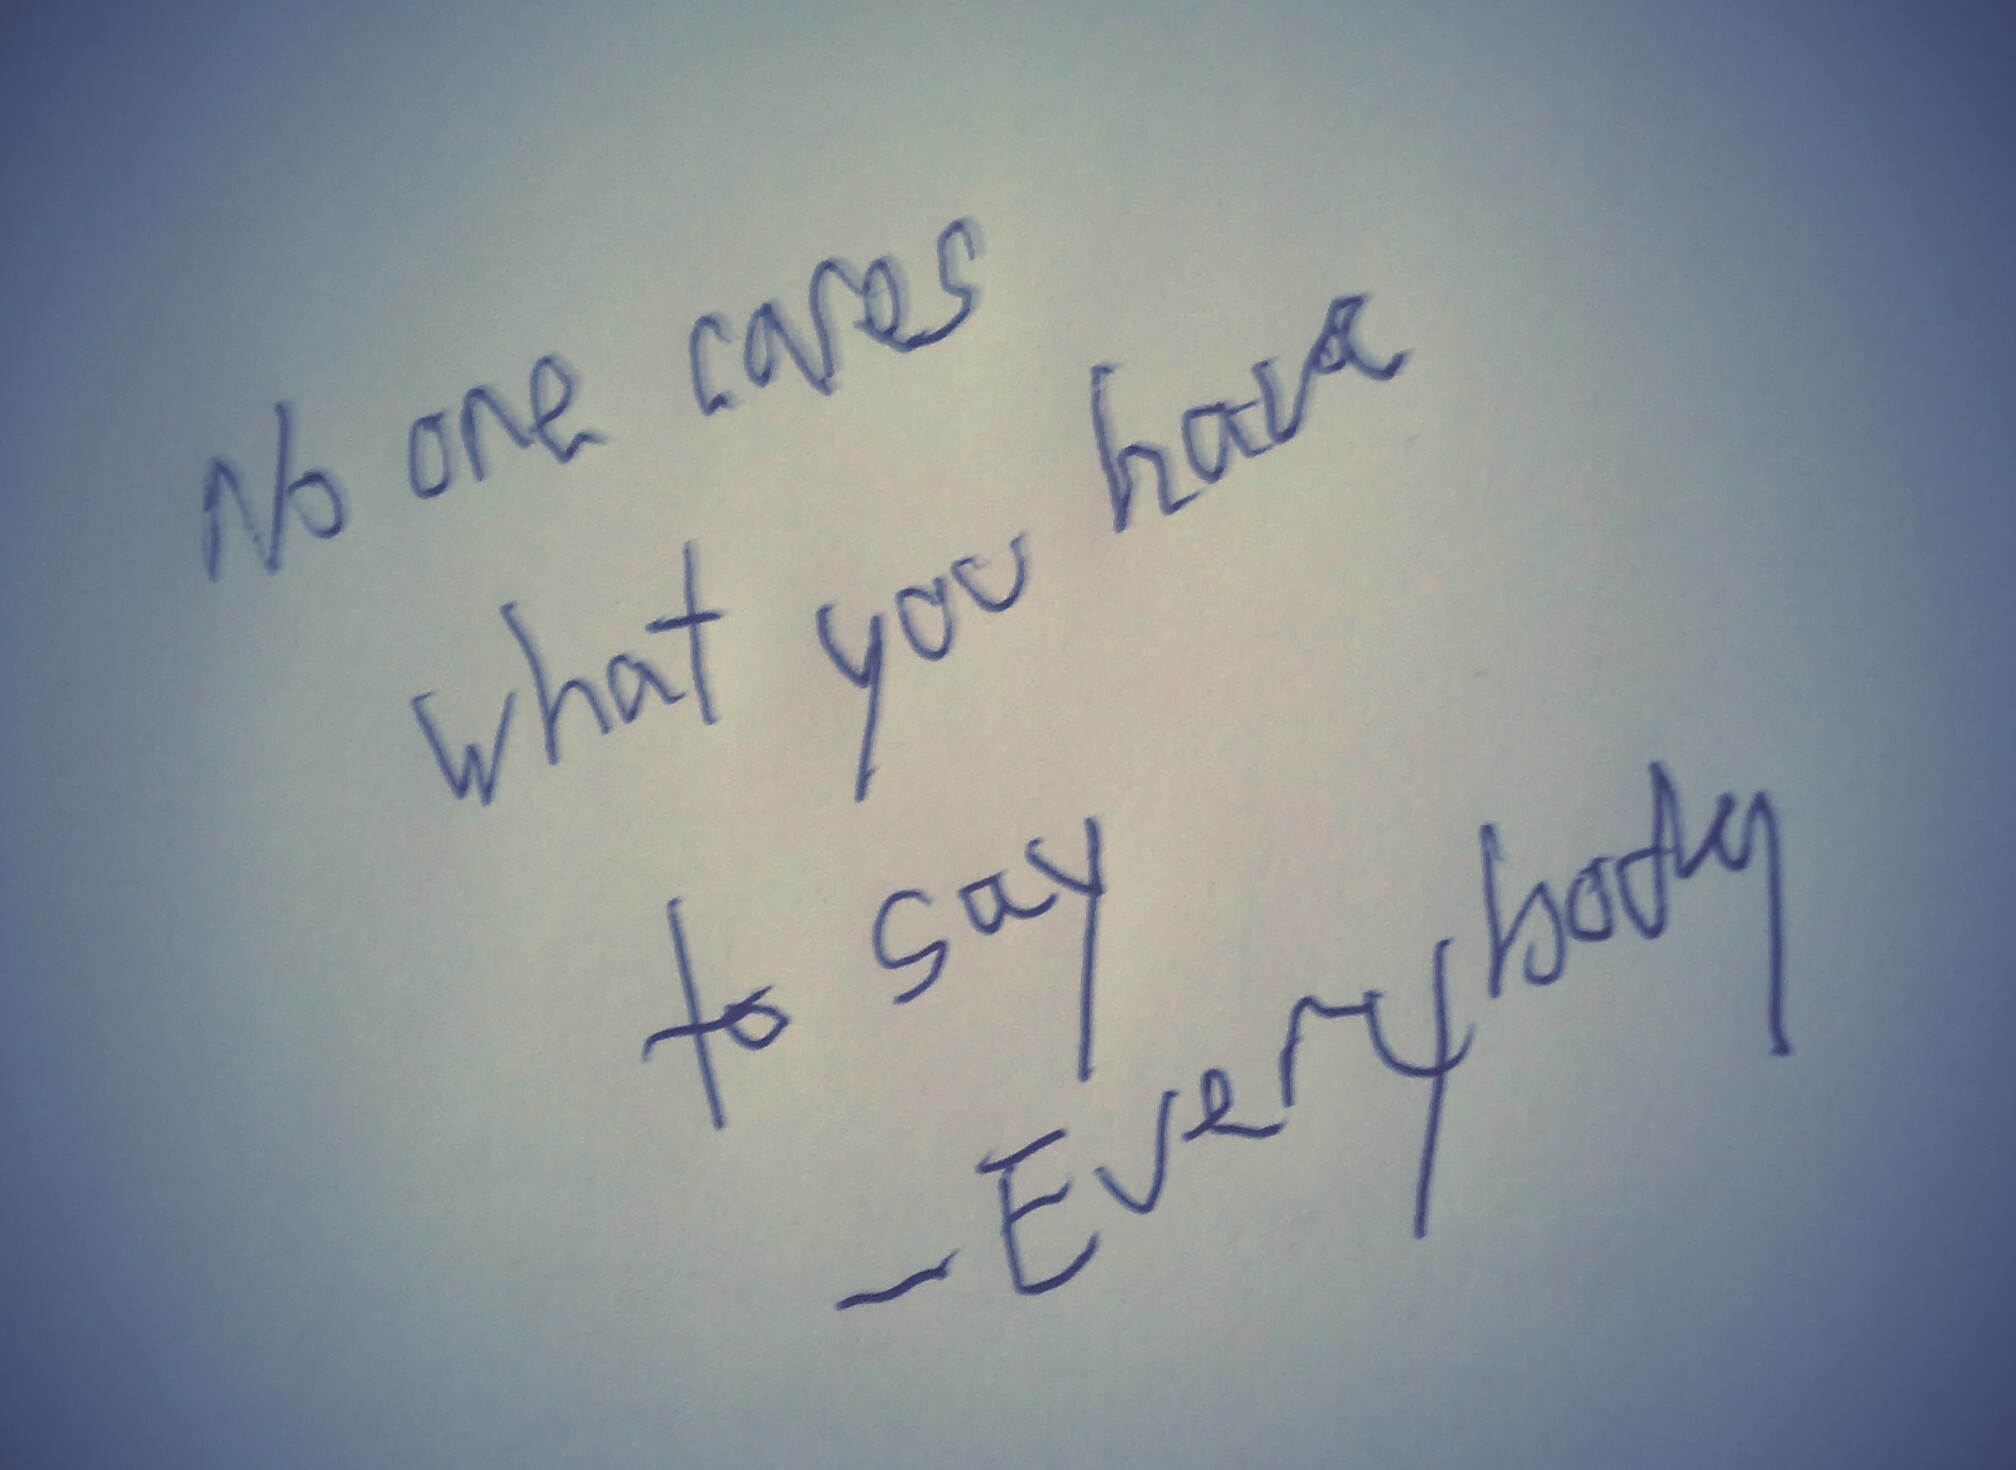 No one cares
what you have
to say
- Everybody